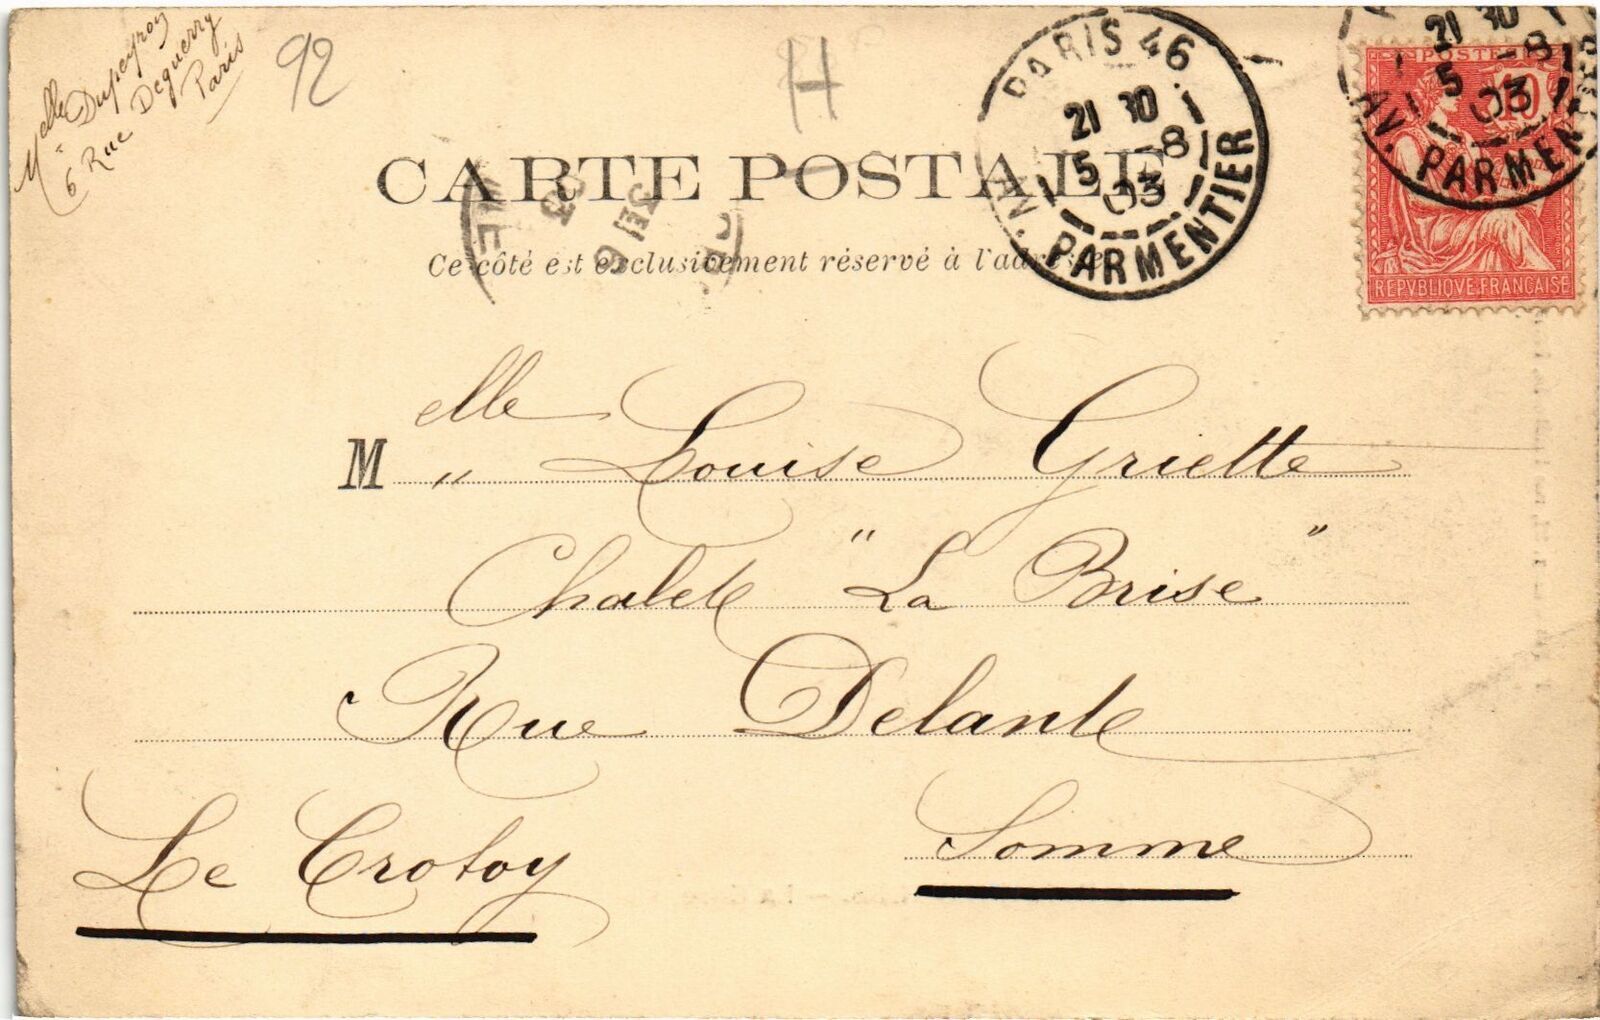 Melle Dupeyron
6 Rue Deguerry
Paris
92
H
PARIS 46
21 30
5 -8
03
AV. PARMENTIER
21 30
5 -8
03
AV. PARMENTIER
POSTES
10
REPVBLIQVE FRANCAISE
CARTE POSTALE
Ce côté est exclusivement réservé à l'adresse
03
M elle " Louise Griette
Chalet " La Brise "
Rue Delante
Le Crotoy Somme